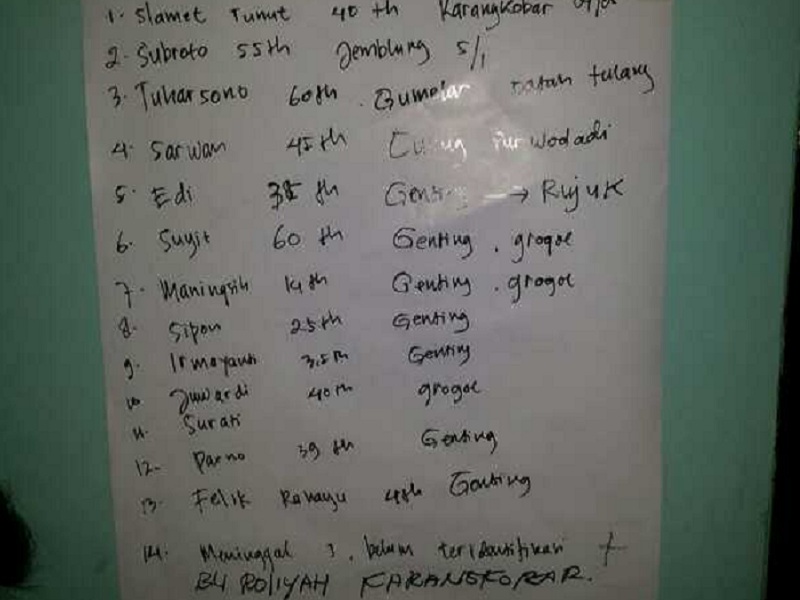 1. Slamet Tunut 40 th Karangkobar
2. Subroto 55th Jemblung 5/1
3. Tuharsono 60th . Gumelar Patah tulang
4. Sarwan 45 th Purwodadi
5. Edi 35 th Genting → Rujuk
6. Suyit 60 th Genting . grogol
7. Maningsih 14 th Genting . grogol
8. Sipon 25th Genting
9. Irmayanti 35th Genting
10. Juwardi 40th grogol
11. Surati
12- Parno 39 th Genting
13. Felik Rahayu 4th Genting
14. Meninggal 3 . belum teridentifikasi
BU ROLIYAH KARANGKOBAR.